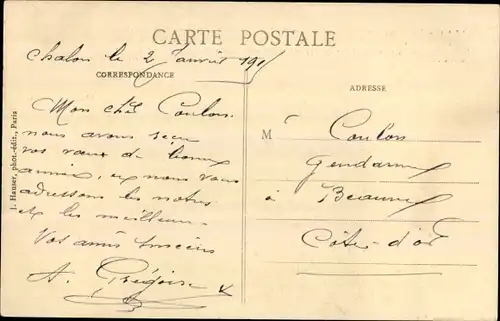 CARTE POSTALE
Chalon le 2 Janvier 191
CORRESPONDANCE
ADRESSE
Mon cher Coulon
nous avons reçu
vos vœux de bonne
année, et nous vous
adressons les notres
et les meilleurs
Vos amis sincères
A. Grégoire
M
Coulon
Gendarme
à Beaune
Côte-d'or
J. Hauser, phot.-édit., Paris